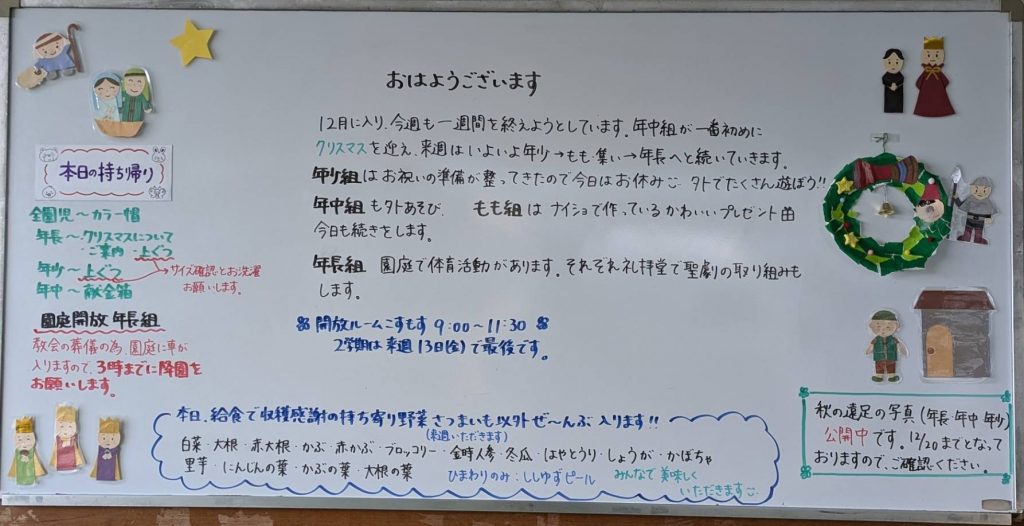 おはようございます
12月に入り、今週も一週間を終えようとしています。年中組が一番初めに
クリスマスを迎え、来週はいよいよ年少→もも・集い→年長へと続いていきます。
年少組はお祝いの準備が整ってきたので今日はお休み 外でたくさん遊ぼう!!
年中組も外あそび、 もも組はナイショで作っているかわいいプレゼント
今日も続きをします。
年長組 園庭で体育活動があります。それぞれ礼拝堂で聖劇の取り組みも
します。
開放ルームこすもす 9:00〜11:30
2学期は来週13日(金)で最後です。
本日の持ち帰り
全園児〜カラー帽
年長〜・クリスマスについて
ご案内・上ぐつ
年少〜上ぐつ
→サイズ確認とお洗濯
お願いします。
年中〜献金箱
園庭開放 年長組
教会の葬儀の為、園庭に車が
入りますので、3時までに降園を
お願いします。
本日、給食で収穫感謝の持ち寄り野菜 さつまいも以外ぜ〜んぶ 入ります!!
(来週いただきます)
白菜・大根・赤大根・かぶ・赤かぶ・ブロッコリー・金時人参・冬瓜・はやとうり・しょうが・かぼちゃ
里芋・にんじんの葉・かぶの葉・大根の葉 ひまわりのみ:ししゆずピール
みんなで美味しく
いただきます
秋の遠足の写真(年長・年中・年少)
公開中です。12/20までとなって
おりますので、ご確認ください。